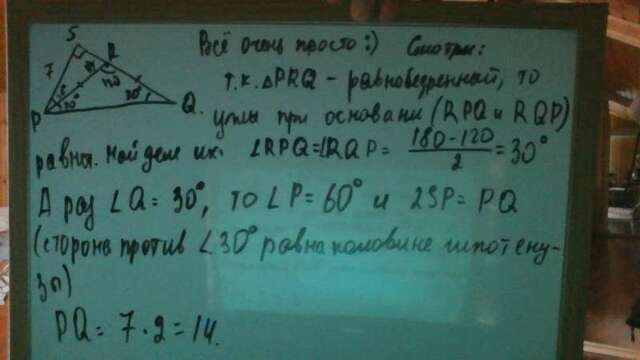 S
R
7
120
30°
30°
P
Q.
Всё очень просто:) Смотри:
т.к. △PRQ - равнобедренный, то
углы при основани (RPQ и RQP)
равны. Найдем их: ∠RPQ=∠RQP= 180-120/2 = 30°
А раз ∠Q= 30°, то ∠P= 60° и 2SP= PQ
(сторона против ∠30° равна половине гипотену-
зы)
PQ= 7·2=14.